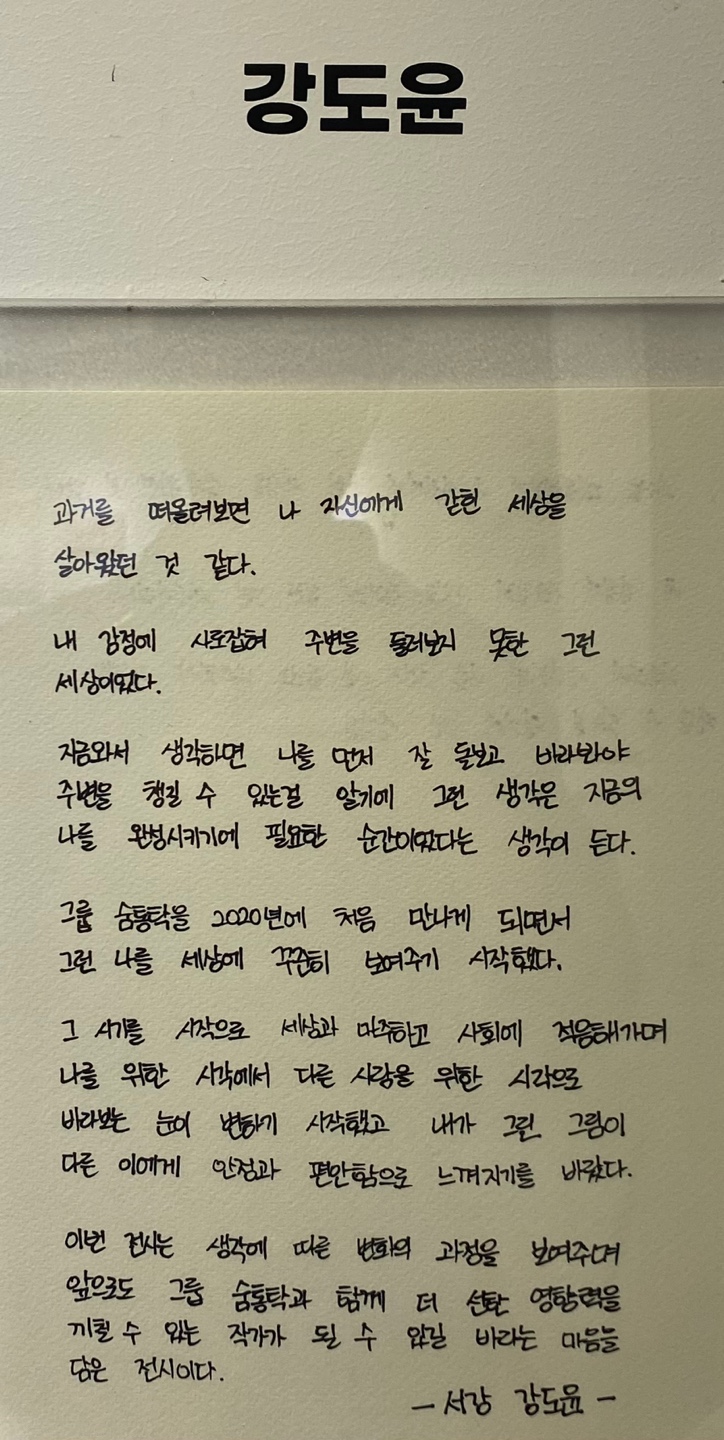 강도윤
과거를 떠올려보면 나 자신에게 갇힌 세상을
살아왔던 것 같다.
내 감정에 사로잡혀 주변을 둘러보지 못한 그런
세상이었다.
지금와서 생각하면 나를 먼저 잘 돌보고 바라봐야
주변을 챙길 수 있는걸 알기에 그런 생각은 지금의
나를 완성시키기에 필요한 순간이었다는 생각이 든다.
그룹 숨통탁을 2020년에 처음 만나게 되면서
그런 나를 세상에 꾸준히 보여주기 시작했다.
그 시기를 시작으로 세상과 마주하고 사회에 적응해가며
나를 위한 시각에서 다른 사람을 위한 시각으로
바라보는 눈이 변하기 시작했고 내가 그린 그림이
다른 이에게 안정과 편안함으로 느껴지기를 바랐다.
이번 전시는 생각에 따른 변화의 과정을 보여주며
앞으로도 그룹 숨통탁과 함께 더 선한 영향력을
끼칠 수 있는 작가가 될 수 있길 바라는 마음을
담은 전시이다.
- 서강 강도윤 -